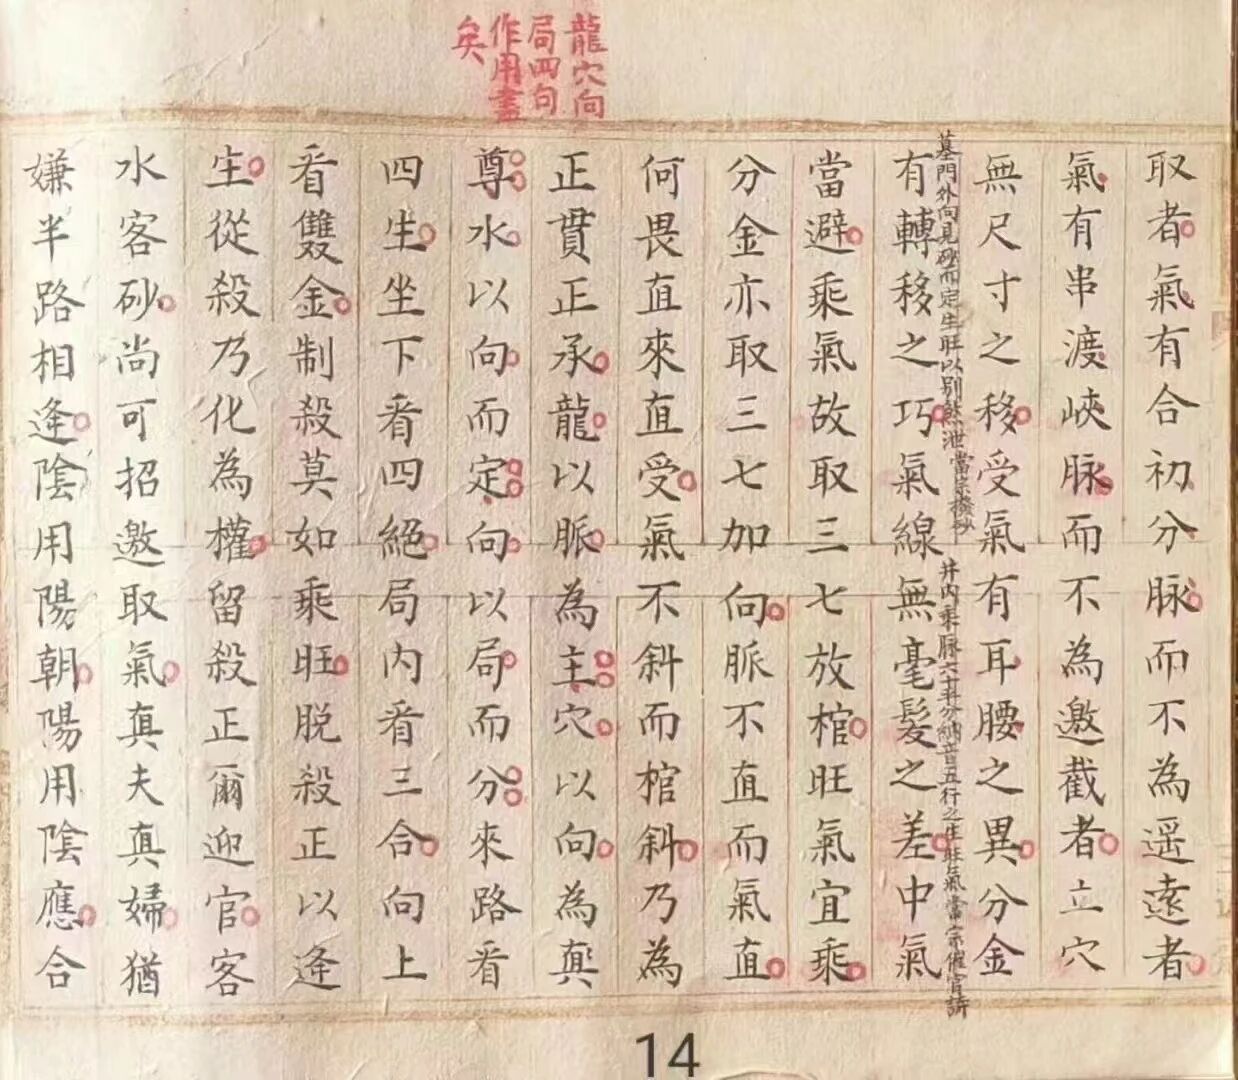 龍穴向
局四句
作用盡
矣
取者氣有合初分脉而不為遥遠者
氣有串渡峽脉而不為邀截者立穴
無尺寸之移受氣有耳腰之異分金
墓門外向見砂而定生旺以别煞泄當宗撥砂
井內乘脉六十科分納音五行之生旺氣當宗催官詩
有轉移之巧氣線無毫髮之差中氣
當避乘氣故取三七放棺旺氣宜乘
分金亦取三七加向脈不直而氣直
何畏直來直受氣不斜而棺斜乃為
正貫正承龍以脈為主穴以向為
尊水以向而定向以局而分來路看
四生坐下看四絕局內看三合向上
看雙金制殺莫如乘旺脱殺正以逢
生從殺乃化為權留殺正爾迎官客
水客砂尚可招邀取氣真夫真婦猶
嫌半路相逢陰用陽朝陽用陰應合
14